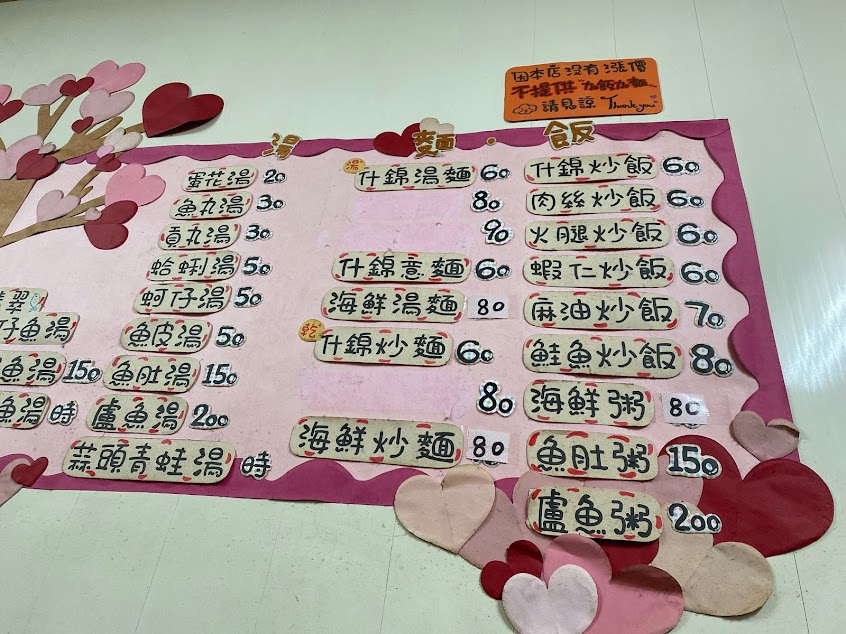 因本店沒有漲價
不提供加飯加麵
請見諒 Thank you
湯
蛋花湯 20
魚丸湯 30
貢丸湯 30
蛤蜊湯 50
蚵仔湯 50
魚皮湯 50
魚肚湯 150
盧魚湯 200
蒜頭青蛙湯 時
翠
仔魚湯
魚湯 150
魚湯 時
麵
湯
什錦湯麵 60
80
90
什錦意麵 60
海鮮湯麵 80
乾
什錦炒麵 60
80
海鮮炒麵 80
飯
什錦炒飯 60
肉絲炒飯 60
火腿炒飯 60
蝦仁炒飯 60
麻油炒飯 70
鮭魚炒飯 80
海鮮粥 80
魚肚粥 150
盧魚粥 200